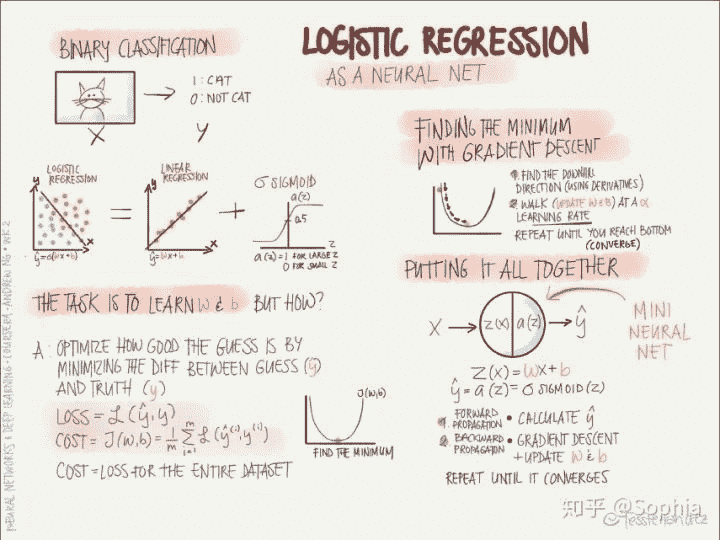 LOGISTIC REGRESSION
AS A NEURAL NET
BINARY CLASSIFICATION
1: CAT
0: NOT CAT
X
y
LOGISTIC
REGRESSION
y
x
ŷ=σ(wx+b)
=
LINEAR
REGRESSION
y
x
ŷ=wx+b
+
σ SIGMOID
a(z)
0.5
z
a(z)=1 FOR LARGE z
0 FOR SMALL z
THE TASK IS TO LEARN w & b BUT HOW?
A: OPTIMIZE HOW GOOD THE GUESS IS BY
MINIMIZING THE DIFF BETWEEN GUESS (ŷ)
AND TRUTH (y)
LOSS = ℒ(ŷ,y)
COST = J(w,b) = 1/m Σ i=1 m ℒ(ŷ⁽ⁱ⁾,y⁽ⁱ⁾)
COST = LOSS FOR THE ENTIRE DATASET
J(w,b)
FIND THE MINIMUM
FINDING THE MINIMUM
WITH GRADIENT DESCENT
1. FIND THE DOWNHILL
DIRECTION (USING DERIVATIVES)
2. WALK (UPDATE w & b) AT A α
LEARNING RATE
REPEAT UNTIL YOU REACH BOTTOM
(CONVERGE)
PUTTING IT ALL TOGETHER
X → z(x) a(z) → ŷ
MINI
NEURAL
NET
z(x) = wx+b
ŷ = a(z) = σ SIGMOID(z)
1. FORWARD PROPAGATION • CALCULATE ŷ
2. BACKWARD PROPAGATION • GRADIENT DESCENT
+ UPDATE w & b
REPEAT UNTIL IT CONVERGES
NEURAL NETWORKS & DEEP LEARNING • COURSERA • ANDREW NG • WK 2
知乎 @Sophia